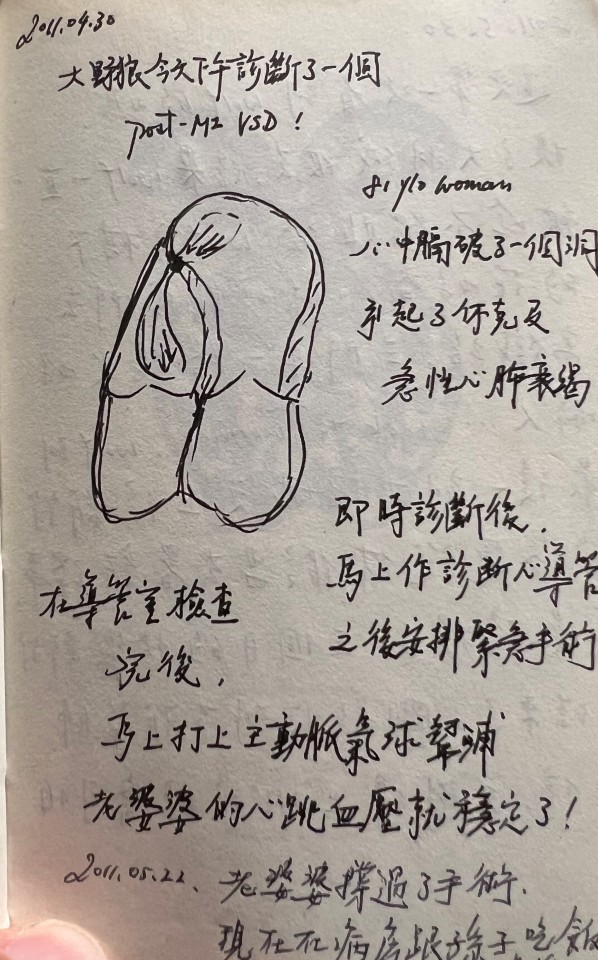 2011.04.30
大野狼今天下午診斷了一個
post-MI VSD!
81 y/o woman
心中膈破了一個洞
引起了休克及
急性心肺衰竭
即時診斷後,
馬上作診斷心導管
之後安排緊急手術
在導管室檢查
完後,
馬上打上主動脈氣球幫浦
老婆婆的心跳血壓就穩定了!
2011.05.22. 老婆婆撐過了手術.
現在在病房跟孫子吃飯